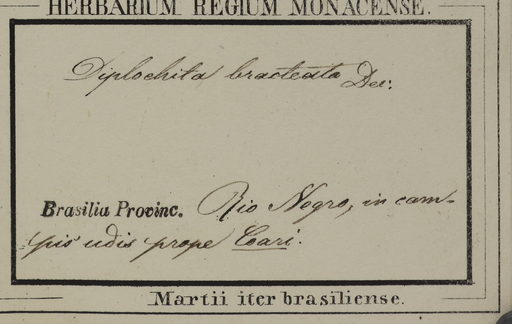 HERBARIUM REGIUM MONACENSE.
Diplochita bracteata Dec:
Brasilia Provinc. Rio Negro, in cam-
pis udis prope Coari.
Martii iter brasiliense.